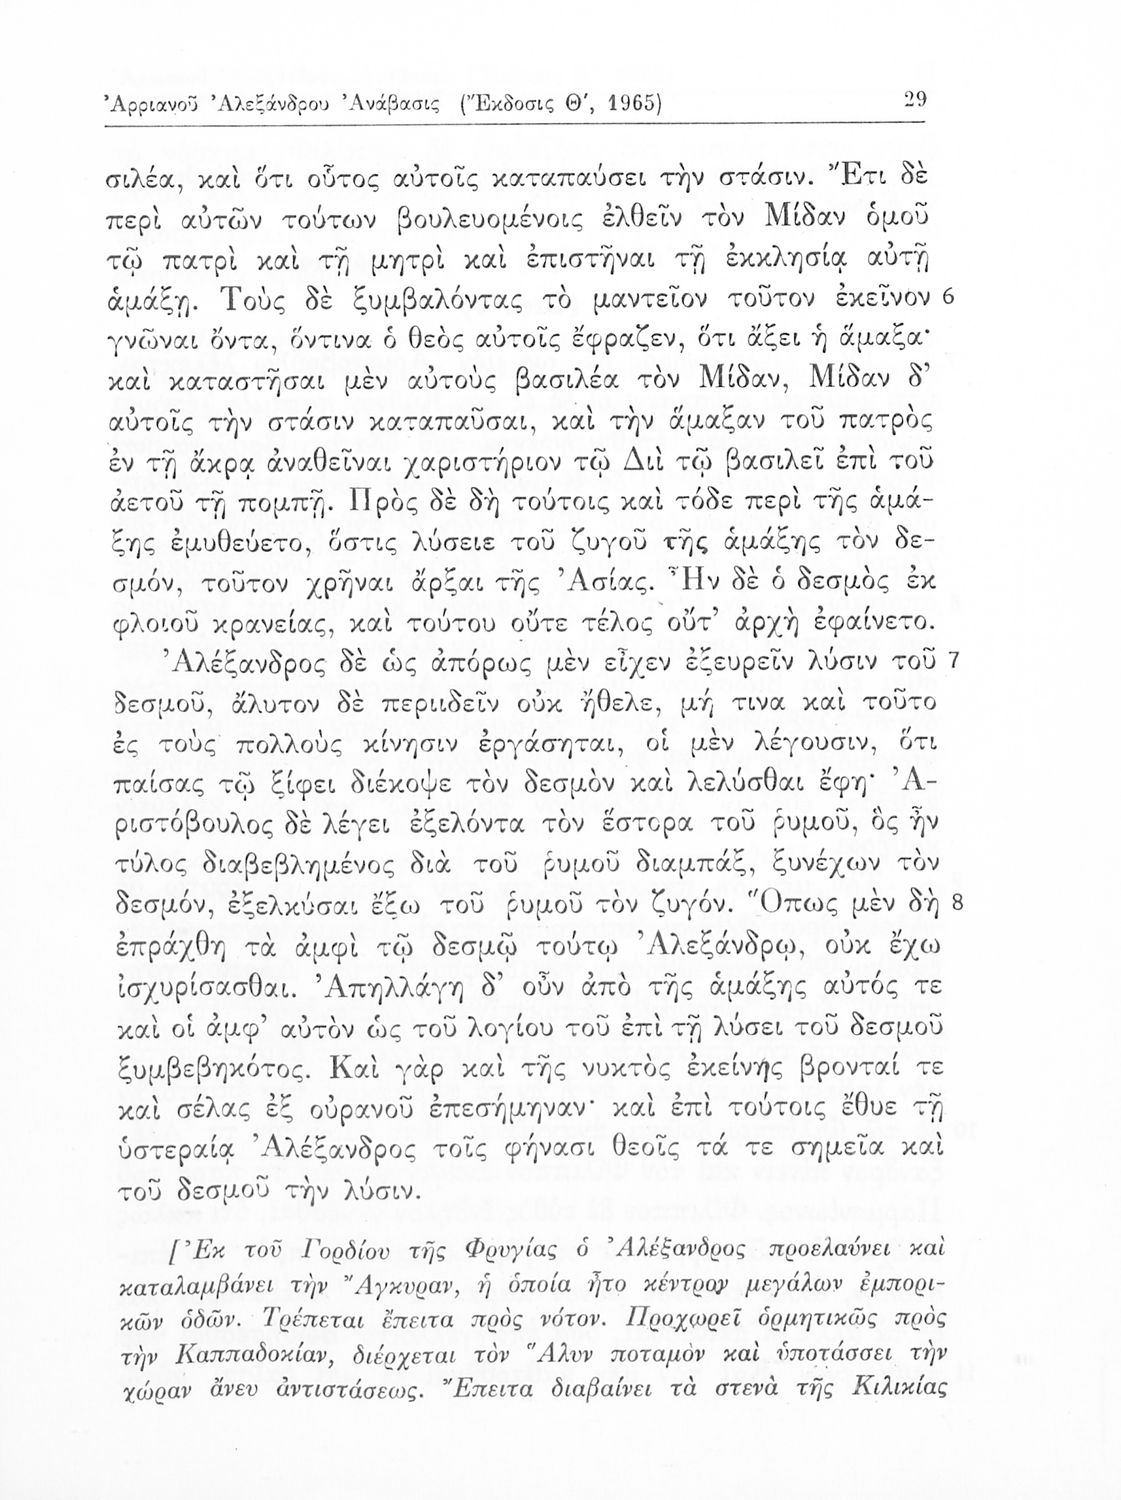 Ἀρριανοῦ Ἀλεξάνδρου Ἀνάβασις (Ἔκδοσις Θ', 1965) 29
σιλέα, καὶ ὅτι οὗτος αὐτοῖς καταπαύσει τὴν στάσιν. Ἔτι δὲ
περὶ αὐτῶν τούτων βουλευομένοις ἐλθεῖν τὸν Μίδαν ὁμοῦ
τῷ πατρὶ καὶ τῇ μητρὶ καὶ ἐπιστῆναι τῇ ἐκκλησίᾳ αὐτῇ
ἁμάξῃ. Τοὺς δὲ ξυμβαλόντας τὸ μαντεῖον τοῦτον ἐκεῖνον 6
γνῶναι ὄντα, ὅντινα ὁ θεὸς αὐτοῖς ἔφραζεν, ὅτι ἄξει ἡ ἅμαξα·
καὶ καταστῆσαι μὲν αὐτοὺς βασιλέα τὸν Μίδαν, Μίδαν δ'
αὐτοῖς τὴν στάσιν καταπαῦσαι, καὶ τὴν ἅμαξαν τοῦ πατρὸς
ἐν τῇ ἄκρᾳ ἀναθεῖναι χαριστήριον τῷ Διὶ τῷ βασιλεῖ ἐπὶ τοῦ
ἀετοῦ τῇ πομπῇ. Πρὸς δὲ δὴ τούτοις καὶ τόδε περὶ τῆς ἁμά-
ξης ἐμυθεύετο, ὅστις λύσειε τοῦ ζυγοῦ τῆς ἁμάξης τὸν δε-
σμόν, τοῦτον χρῆναι ἄρξαι τῆς Ἀσίας. Ἦν δὲ ὁ δεσμὸς ἐκ
φλοιοῦ κρανείας, καὶ τούτου οὔτε τέλος οὔτ' ἀρχὴ ἐφαίνετο.
Ἀλέξανδρος δὲ ὡς ἀπόρως μὲν εἶχεν ἐξευρεῖν λύσιν τοῦ 7
δεσμοῦ, ἄλυτον δὲ περιιδεῖν οὐκ ἤθελε, μή τινα καὶ τοῦτο
ἐς τοὺς πολλοὺς κίνησιν ἐργάσηται, οἱ μὲν λέγουσιν, ὅτι
παίσας τῷ ξίφει διέκοψε τὸν δεσμὸν καὶ λελύσθαι ἔφη· Ἀ-
ριστόβουλος δὲ λέγει ἐξελόντα τὸν ἕστορα τοῦ ῥυμοῦ, ὃς ἦν
τύλος διαβεβλημένος διὰ τοῦ ῥυμοῦ διαμπάξ, ξυνέχων τὸν
δεσμόν, ἐξελκύσαι ἔξω τοῦ ῥυμοῦ τὸν ζυγόν. Ὅπως μὲν δὴ 8
ἐπράχθη τὰ ἀμφὶ τῷ δεσμῷ τούτῳ Ἀλεξάνδρῳ, οὐκ ἔχω
ἰσχυρίσασθαι. Ἀπηλλάγη δ' οὖν ἀπὸ τῆς ἁμάξης αὐτός τε
καὶ οἱ ἀμφ' αὐτὸν ὡς τοῦ λογίου τοῦ ἐπὶ τῇ λύσει τοῦ δεσμοῦ
ξυμβεβηκότος. Καὶ γὰρ καὶ τῆς νυκτὸς ἐκείνης βρονταί τε
καὶ σέλας ἐξ οὐρανοῦ ἐπεσήμηναν· καὶ ἐπὶ τούτοις ἔθυε τῇ
ὑστεραίᾳ Ἀλέξανδρος τοῖς φήνασι θεοῖς τά τε σημεῖα καὶ
τοῦ δεσμοῦ τὴν λύσιν.
[Ἐκ τοῦ Γορδίου τῆς Φρυγίας ὁ Ἀλέξανδρος προελαύνει καὶ
καταλαμβάνει τὴν Ἄγκυραν, ἡ ὁποία ἦτο κέντρον μεγάλων ἐμπορι-
κῶν ὁδῶν. Τρέπεται ἔπειτα πρὸς νότον. Προχωρεῖ ὁρμητικῶς πρὸς
τὴν Καππαδοκίαν, διέρχεται τὸν Ἅλυν ποταμὸν καὶ ὑποτάσσει τὴν
χώραν ἄνευ ἀντιστάσεως. Ἔπειτα διαβαίνει τὰ στενὰ τῆς Κιλικίας